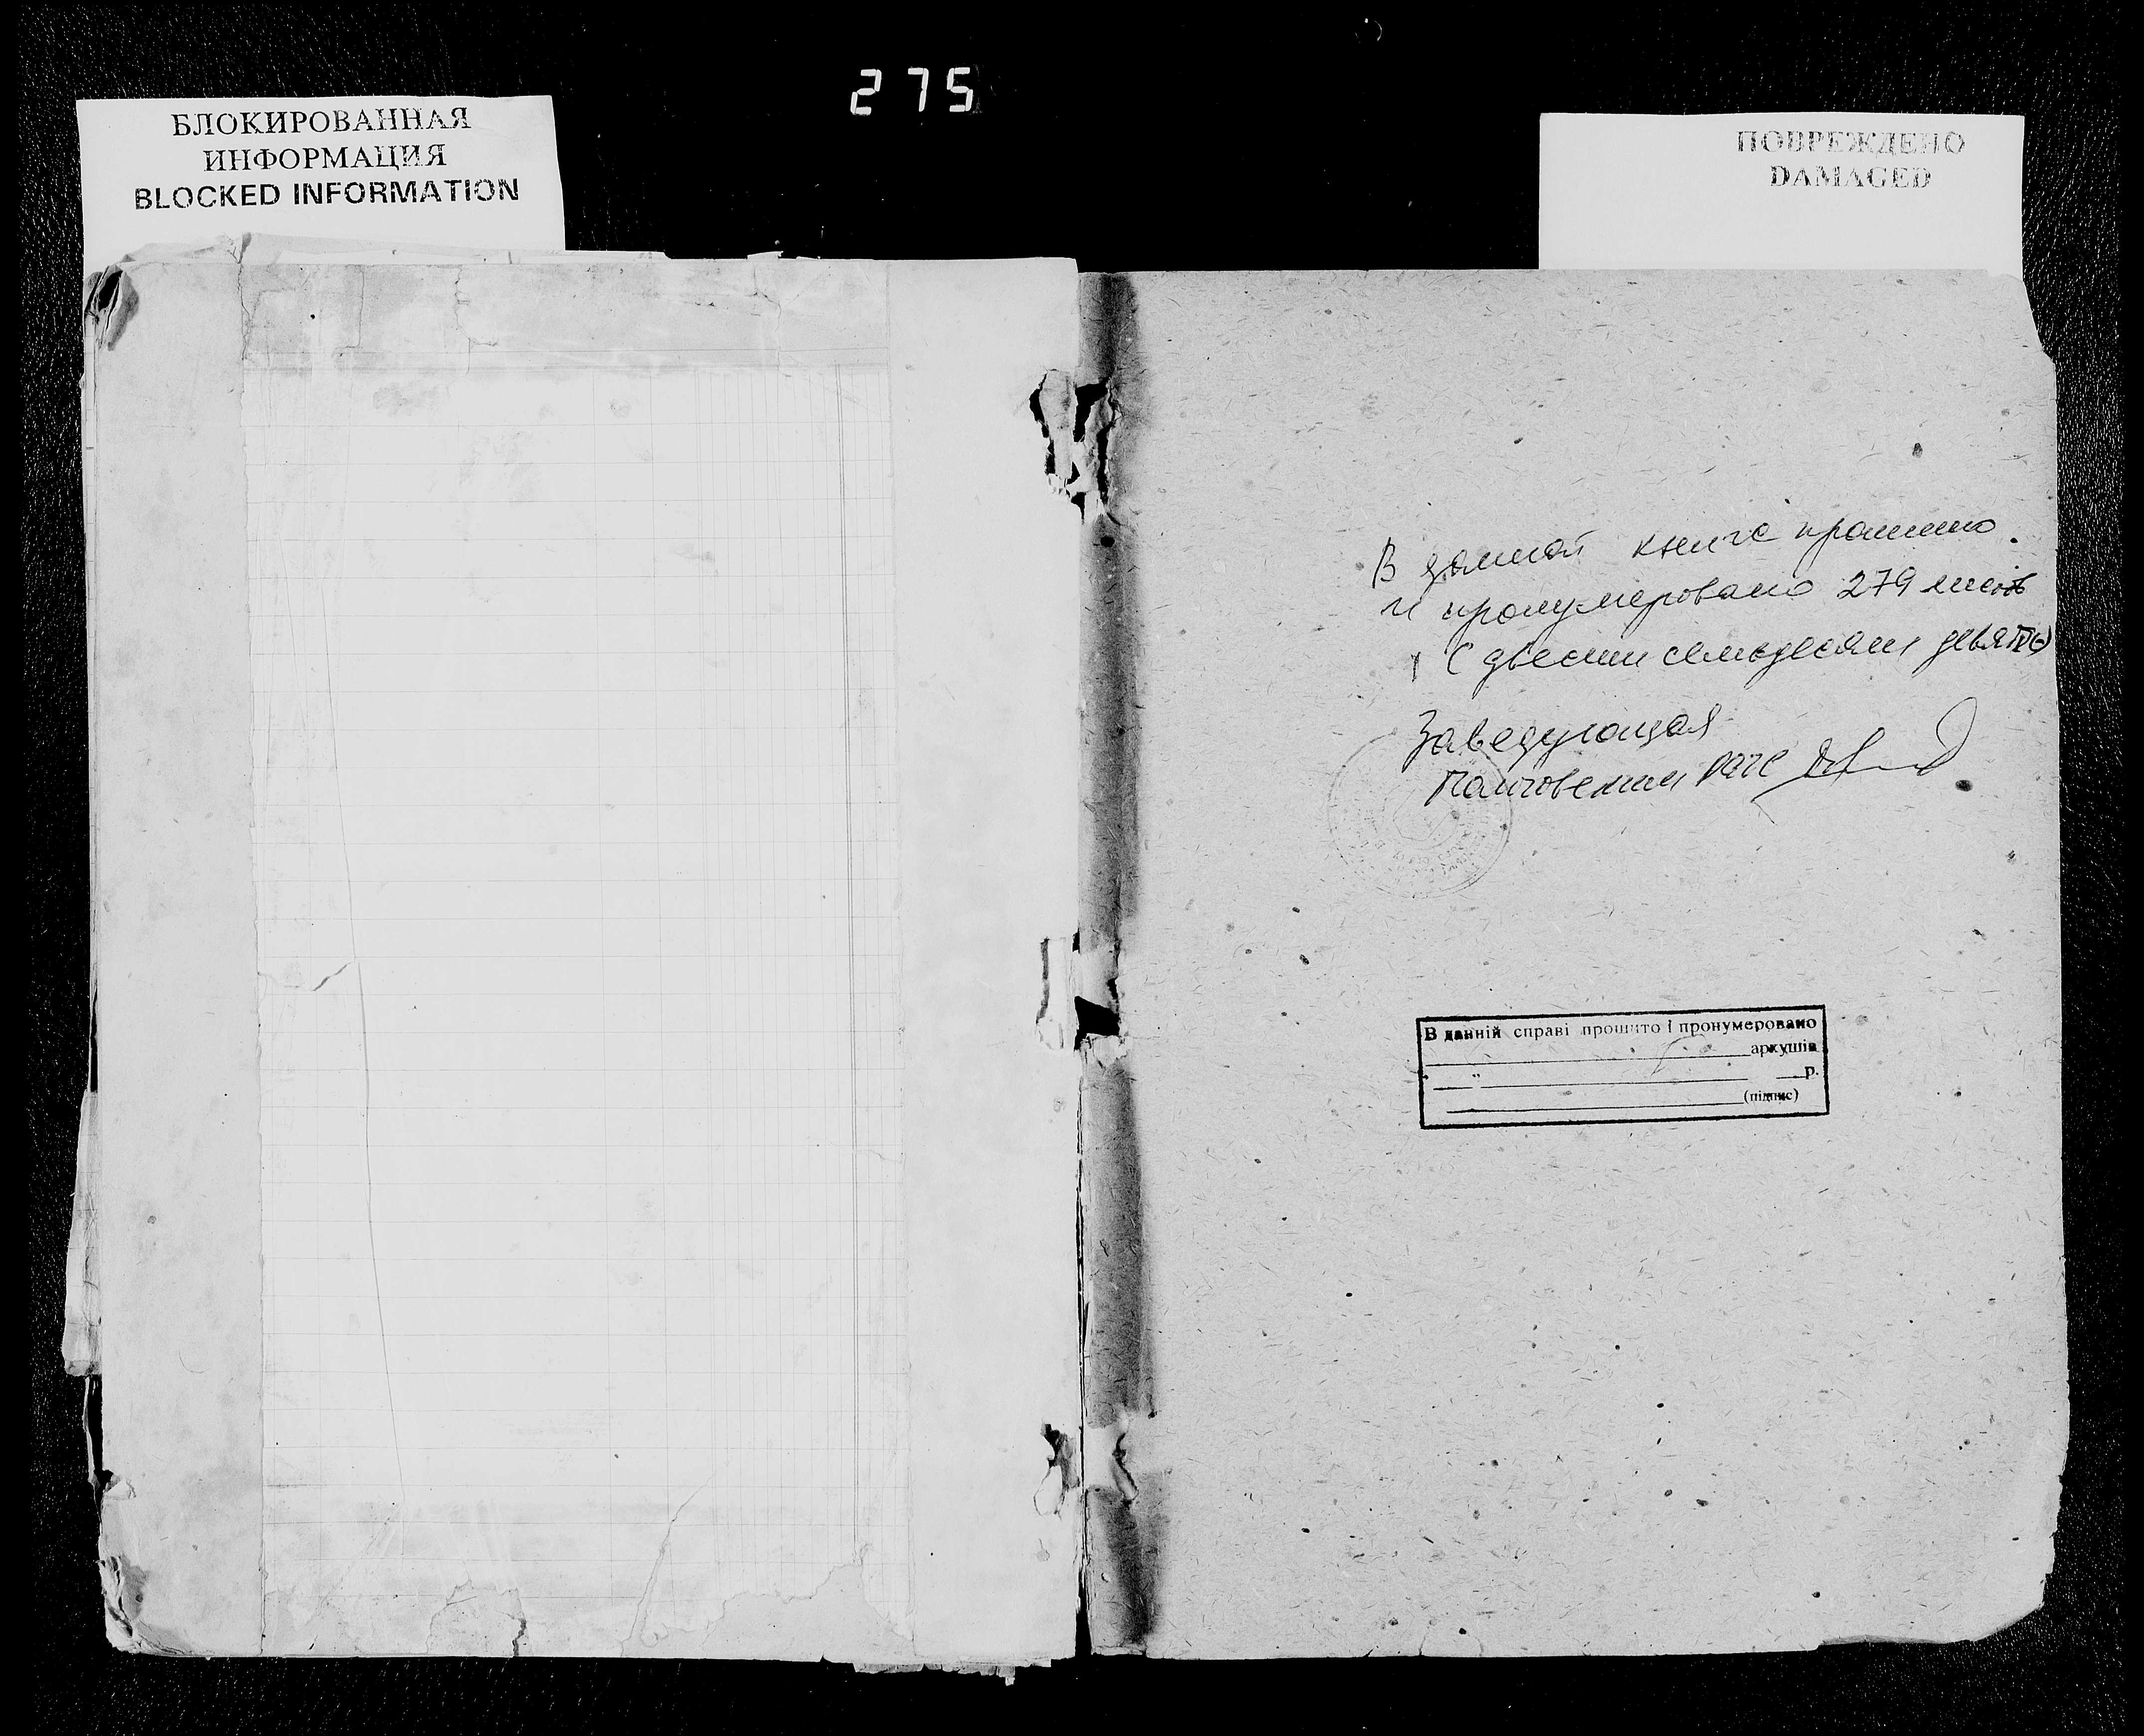 275
БЛОКИРОВАННАЯ
ИНФОРМАЦИЯ
BLOCKED INFORMATION
ПОВРЕЖДЕНО
DAMAGED
В данной книге прошито
и пронумеровано 279 листов
(двести семьдесят девять)
Заведующая
РАГС
В данній справі прошито і пронумеровано
аркушів
"р.
(підпис)